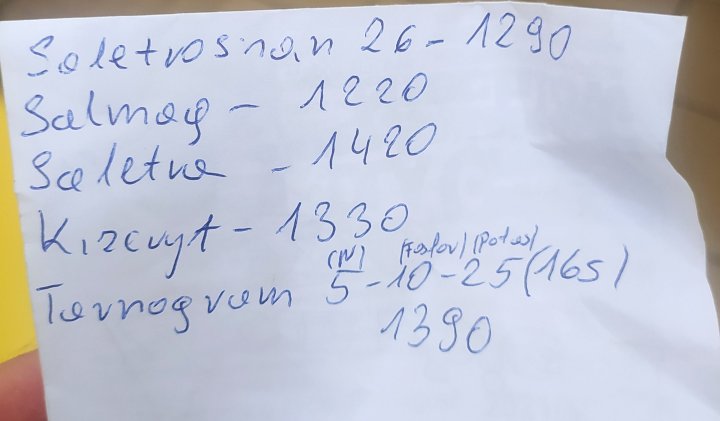 Saletrosnan 26 - 1290
Salmag - 1220
Saletra - 1420
Kizeryt - 1330
(N) (Fosfor) (Potas)
Tarnogram 5-10-25 (16S)
1390